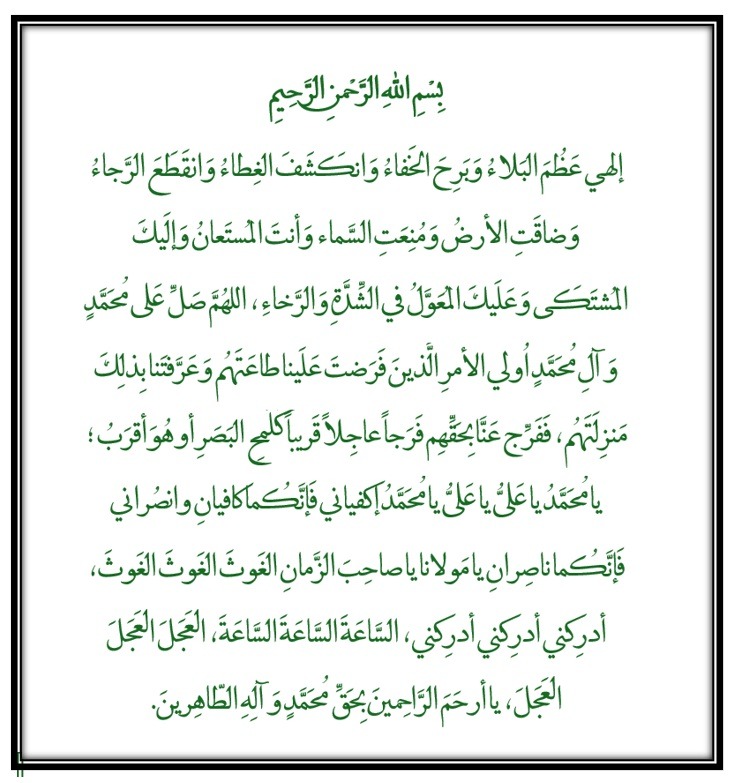 بِسْمِ اللهِ الرَّحْمنِ الرَّحِيمِ
إلهي عَظُمَ البَلاءُ وَبَرِحَ الخَفاءُ وَانكَشَفَ الغِطاءُ وَانقَطَعَ الرَّجاءُ
وَضاقَتِ الأرضُ وَمُنِعَتِ السَّماء وَأنتَ المُستَعانُ وَإلَيكَ
المُشتَكَى وَعَلَيكَ المُعَوَّلُ في الشِّدَّةِ وَالرَّخاءِ، اللهُمَّ صَلِّ عَلى مُحَمَّدٍ
وَ آلِ مُحَمَّدٍ اُولي الأمرِ الَّذينَ فَرَضتَ عَلَينا طاعَتَهُم وَعَرَّفتَنا بِذلِكَ
مَنزِلَتَهُم، فَفَرِّج عَنَّا بِحَقِّهِم فَرَجاً عاجِلاً قَريباً كَلَمحِ البَصَرِ أو هُوَ أقرَبُ؛
يا مُحَمَّدُ يا عَليُّ يا عَليُّ يا مُحَمَّدُ إكفياني فَإنَّكُما كافيانِ وانصُراني
فَإنَّكُما ناصِرانِ يا مَولانا يا صاحِبَ الزَّمانِ الغَوثَ الغَوثَ الغَوثَ،
أدرِكني أدرِكني أدرِكني، السَّاعَةَ السَّاعَةَ السَّاعَةَ، العَجَلَ العَجَلَ
العَجَلَ، يا أرحَمَ الرَّاحِمينَ بِحَقِّ مُحَمَّدٍ وَ آلِهِ الطّاهِرينَ.